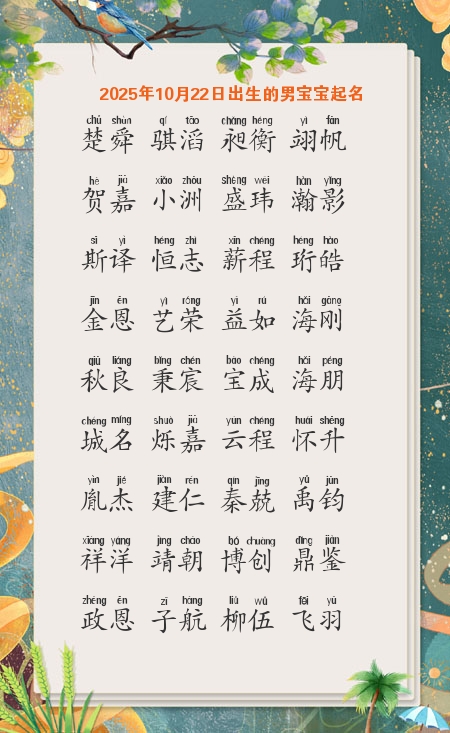 2025年10月22日出生的男宝宝起名
chǔ shùn qí tāo chǎng héng yì fān
楚舜 骐滔 昶衡 翊帆
hè jiā xiǎo zhōu shèng wěi hàn yǐng
贺嘉 小洲 盛玮 瀚影
sī yì héng zhì xīn chéng héng hào
斯译 恒志 薪程 珩皓
jīn ēn yì róng yì rú hǎi gāng
金恩 艺荣 益如 海刚
qiū liáng bǐng chén bǎo chéng hǎi péng
秋良 秉宸 宝成 海朋
chéng míng shuò jiā yún chéng huái shēng
城名 烁嘉 云程 怀升
yìn jié jiàn rén qín jīng yǔ jūn
胤杰 建仁 秦兢 禹钧
xiáng yáng jìng cháo bó chuàng dǐng jiàn
祥洋 靖朝 博创 鼎鉴
zhèng ēn zǐ háng liǔ wǔ fēi yǔ
政恩 子航 柳伍 飞羽